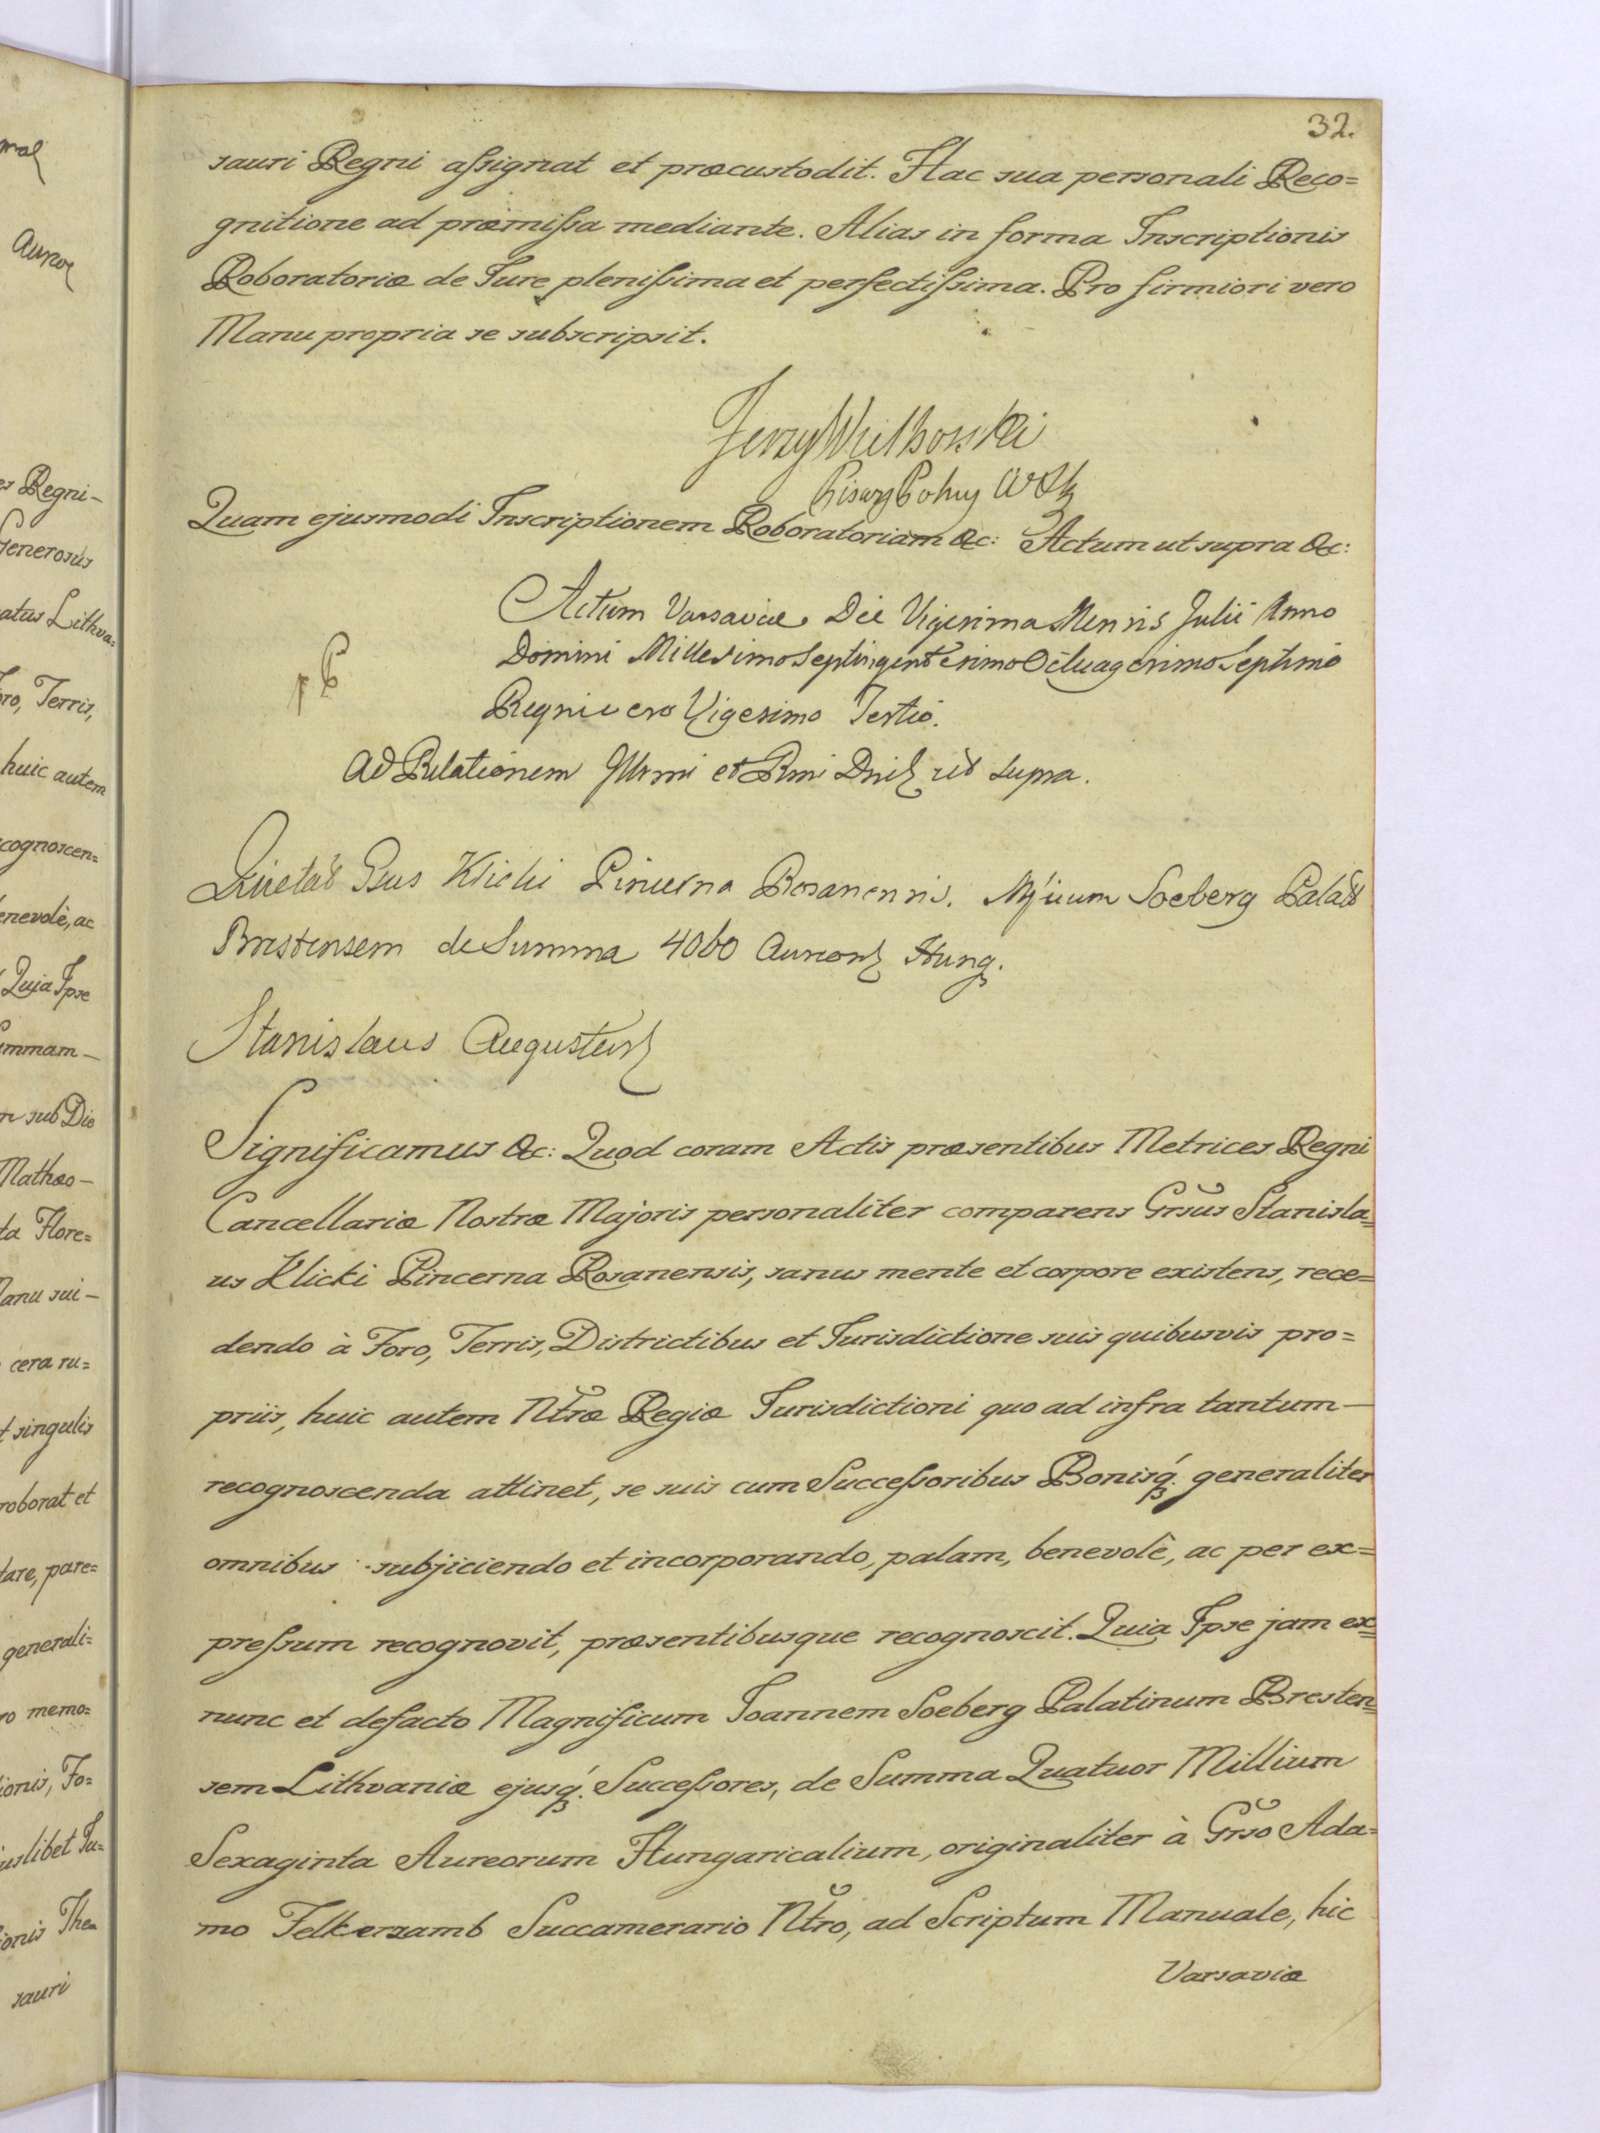 32.
sauri Regni assignat et præcustodit. Hac sua personali Reco=
gnitione ad præmissa mediante. Alias in forma Inscriptionis
Roboratoriæ de Jure plenissima et perfectissima. Pro firmiori vero
Manu propria se subscripsit.
Jerzy
Pisarz
Quam ejusmodi Inscriptionem Roboratoriam &c: Actum ut supra &c:
Actum Varsaviæ Die Vigesima Mensis Julii Anno
Domini Millesimo Septingentesimo Octuagesimo Septimo
Regni vero Vigesimo Tertio.
Ad Relationem Illrmi et Rmi Dni ut supra.
Quietat Gsus Klicki Pincerna Rosanensis. Mficum Soeberg Palat
Brestensem de Summa 4060 Aureor Hung.
Stanislaus Augustus
Significamus &c: Quod coram Actis præsentibus Metrices Regni
Cancellariæ Nostræ Majoris personaliter comparens Grsus Stanisla=
us Klicki Pincerna Rosanensis, sanus mente et corpore existens, rece=
dendo à Foro, Terris, Districtibus et Jurisdictione suis quibusvis pro=
priis, huic autem Ntræ Regiæ Jurisdictioni quo ad infra tantum—
recognoscenda attinet, se suis cum Successoribus Bonisq. generaliter
omnibus subjiciendo et incorporando, palam, benevolê, ac per ex=
pressum recognovit, præsentibusque recognoscit. Quia Ipse jam ex=
nunc et defacto Magnificum Joannem Soeberg Palatinum Bresten=
sem Lithvaniæ ejusq. Successores, de Summa Quatuor Millium
Sexaginta Aureorum Hungaricalium, originaliter à Grso Ada=
mo Felkerzamb Succamerario Ntro, ad Scriptum Manuale, hic
Varsaviæ